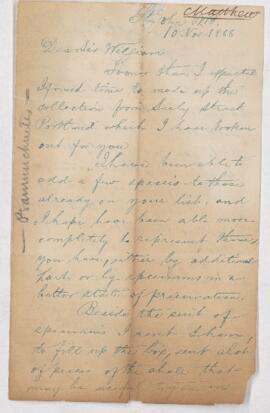 Matthew
St John N.B.
10 Nov 1888
Dear Sir William
Sooner than I expected
I found time to made up the
collection from Sealy Street
Portland which I have broken
out for you
I have been able to
add a few species to those
already on your list, and
I hope have been able more
completely to represent those
you have, either by additional
parts or by specimens in a
better state of preservation.
Beside the suit of
specimens I sent I have,
to fill up the box, sent a lot
of pieces of the shale that
may be useful